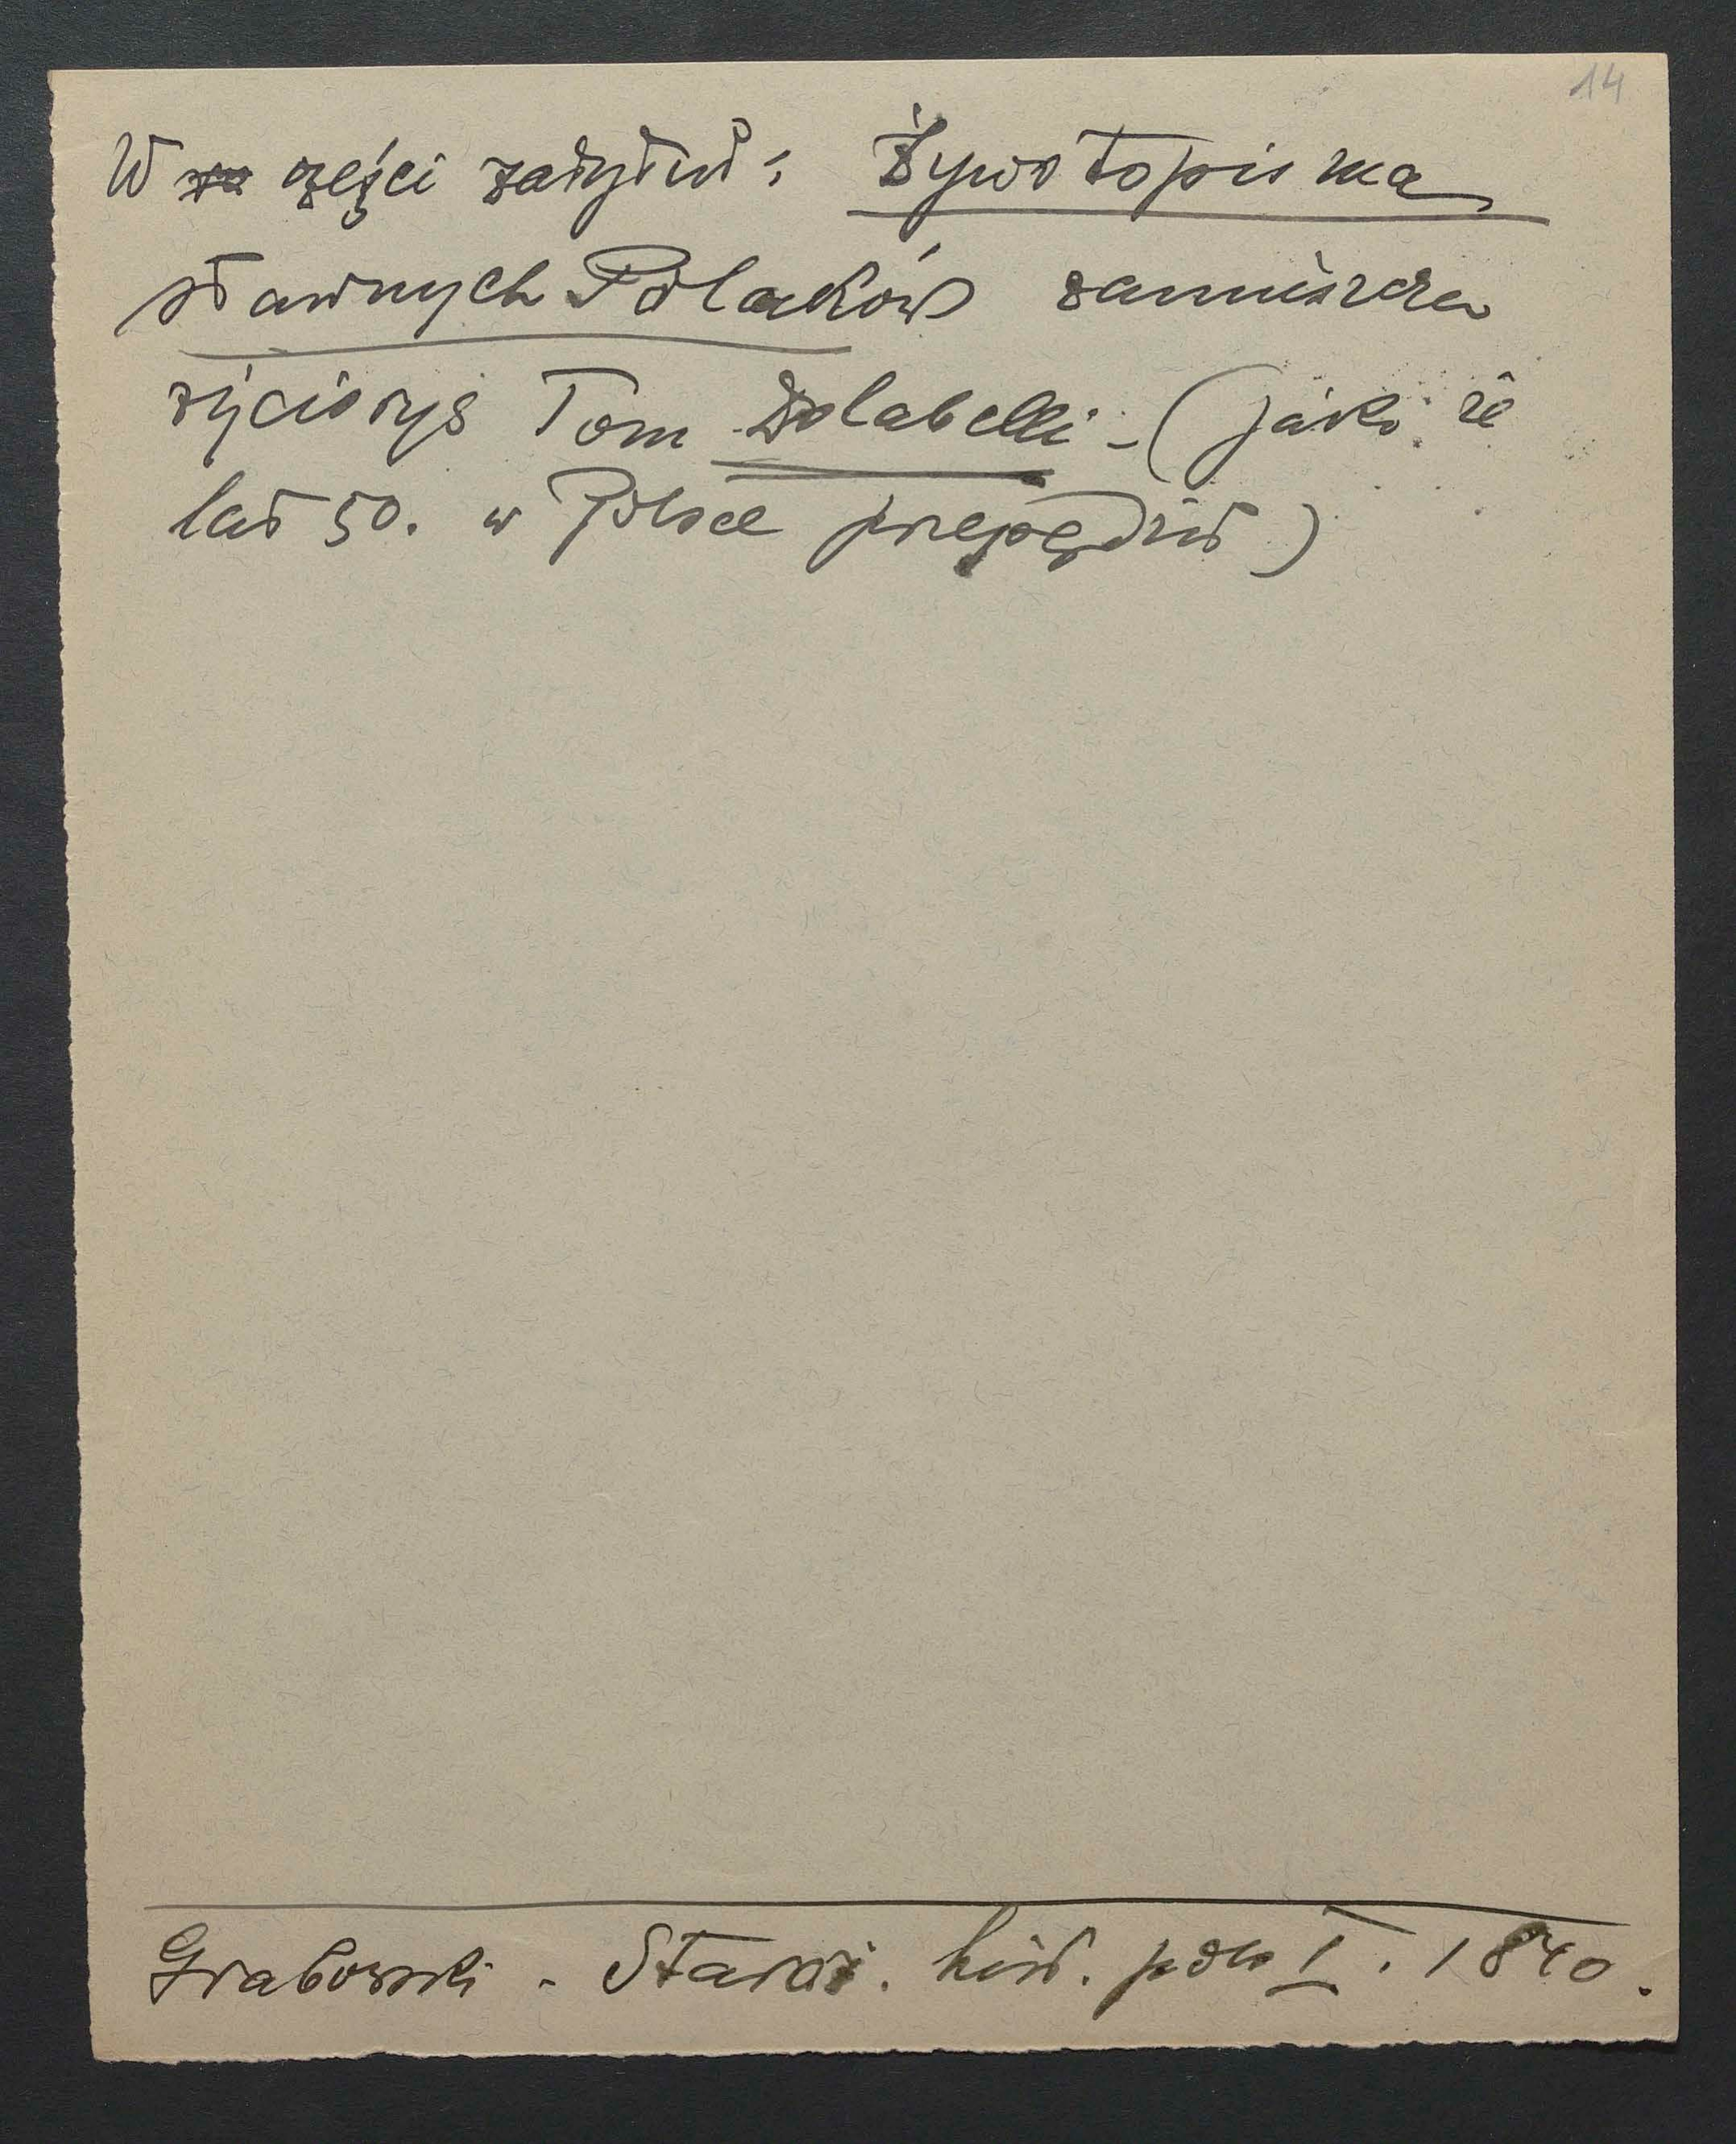 14
W części zatytuł: Żywotopisma
sławnych Polaków zamieszcza
życiorys Tom Dolabelli - (jako że
lat 50. w Polsce przepędził)
Grabowski - Staroż. hist. pols I. 1840.